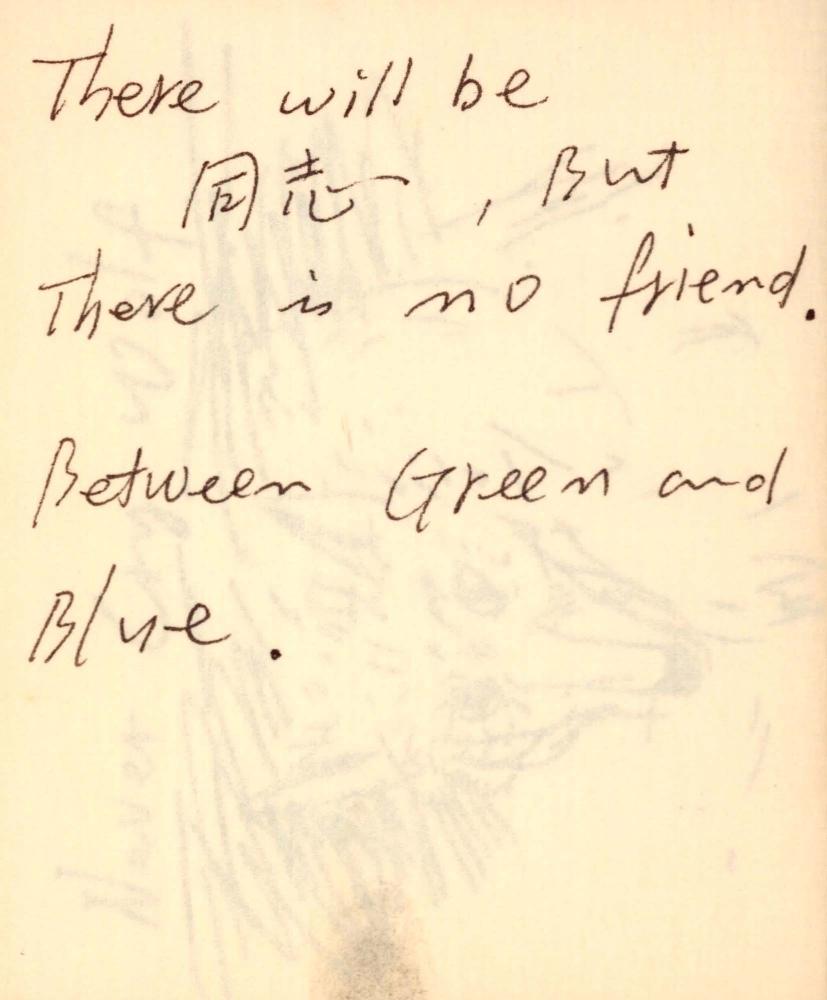 There will be
同志, But
There is no friend.
Between Green and
Blue.